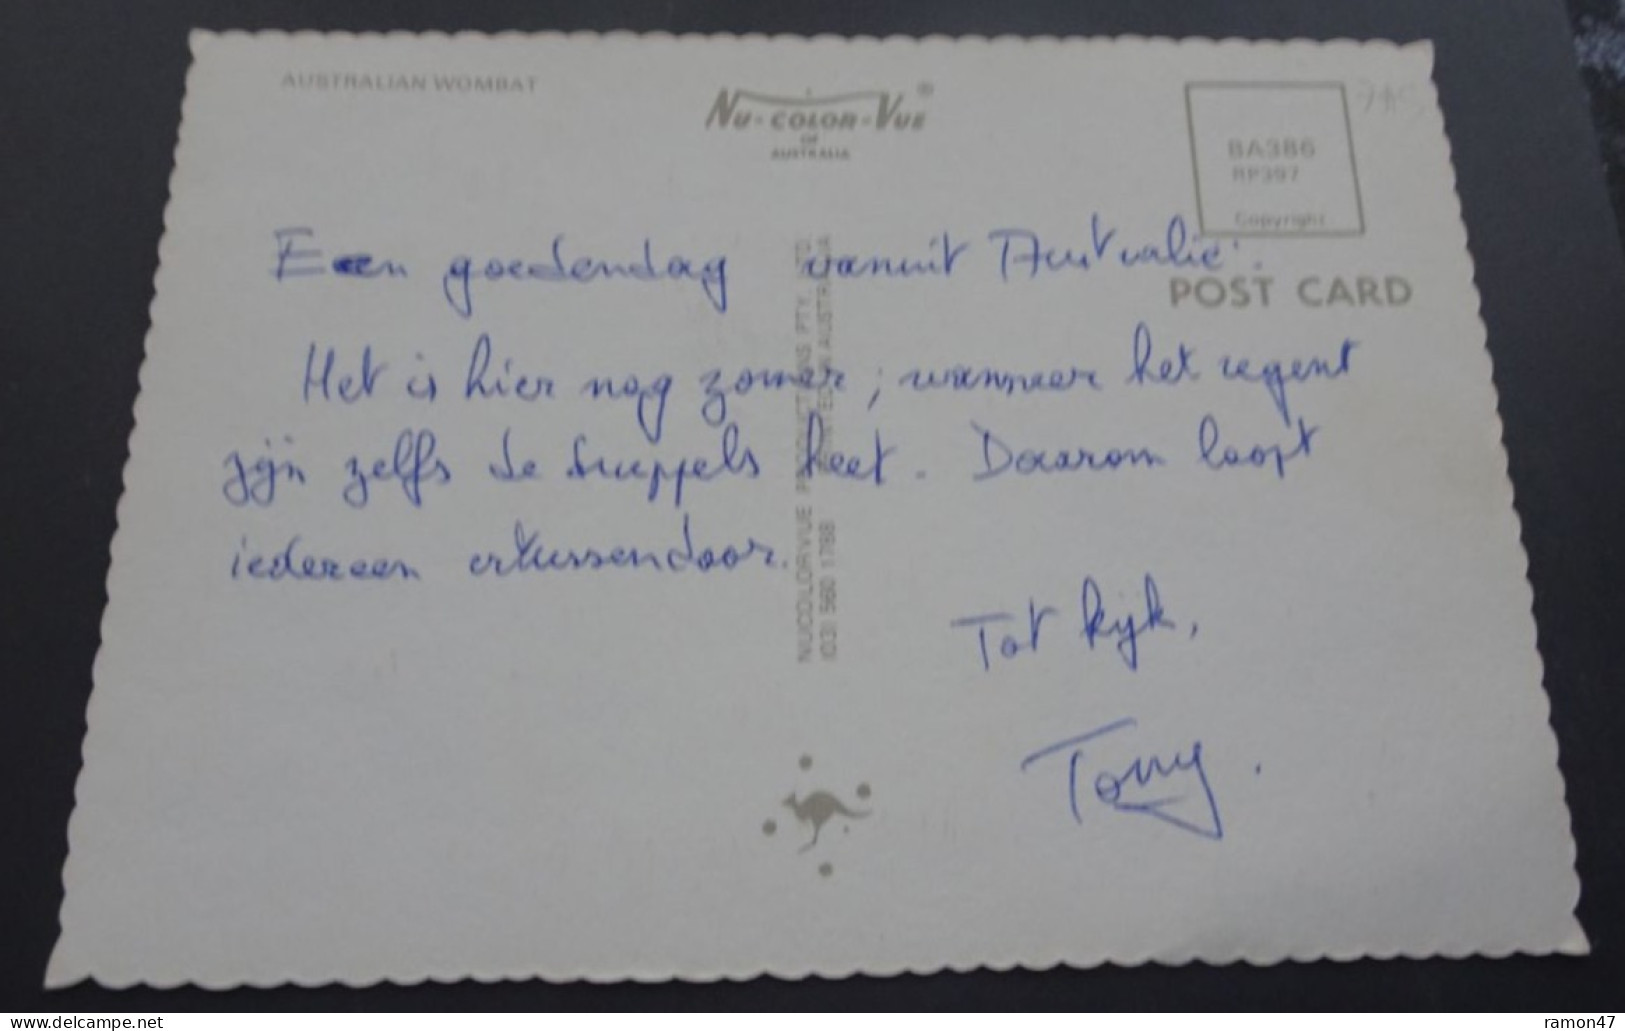 AUSTRALIAN WOMBAT
NU-COLOR-VUE®
OF
AUSTRALIA
BA386
RP397
Copyright
POST CARD
Een goedendag vanuit Australië.
Het is hier nog zomer; wanneer het regent
zijn zelfs de druppels heet. Daarom loopt
iedereen ertussendoor.
Tot kijk,
Tony.
NUCOLORVUE PRODUCTIONS PTY. LTD.
(03) 560 1768 PRINTED IN AUSTRALIA
delcampe.net
ramon47